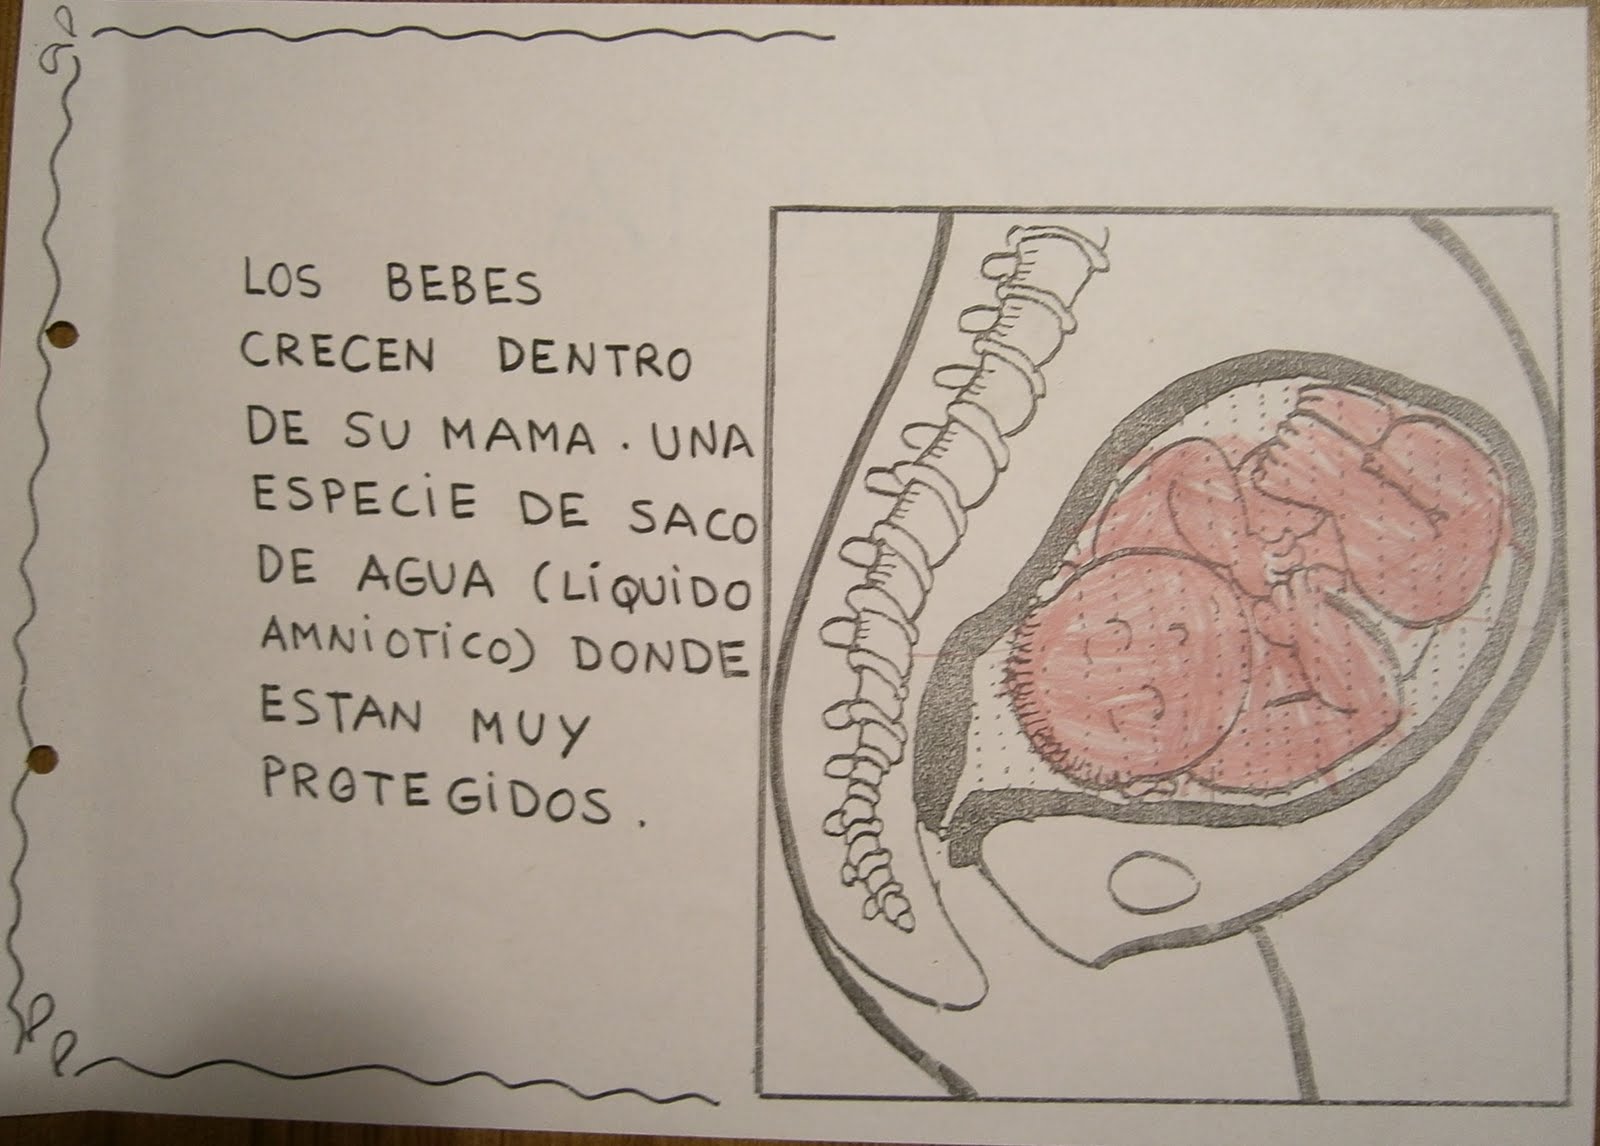 LOS BEBES
CRECEN DENTRO
DE SU MAMA. UNA
ESPECIE DE SACO
DE AGUA (LÍQUIDO
AMNIOTICO) DONDE
ESTAN MUY
PROTEGIDOS.